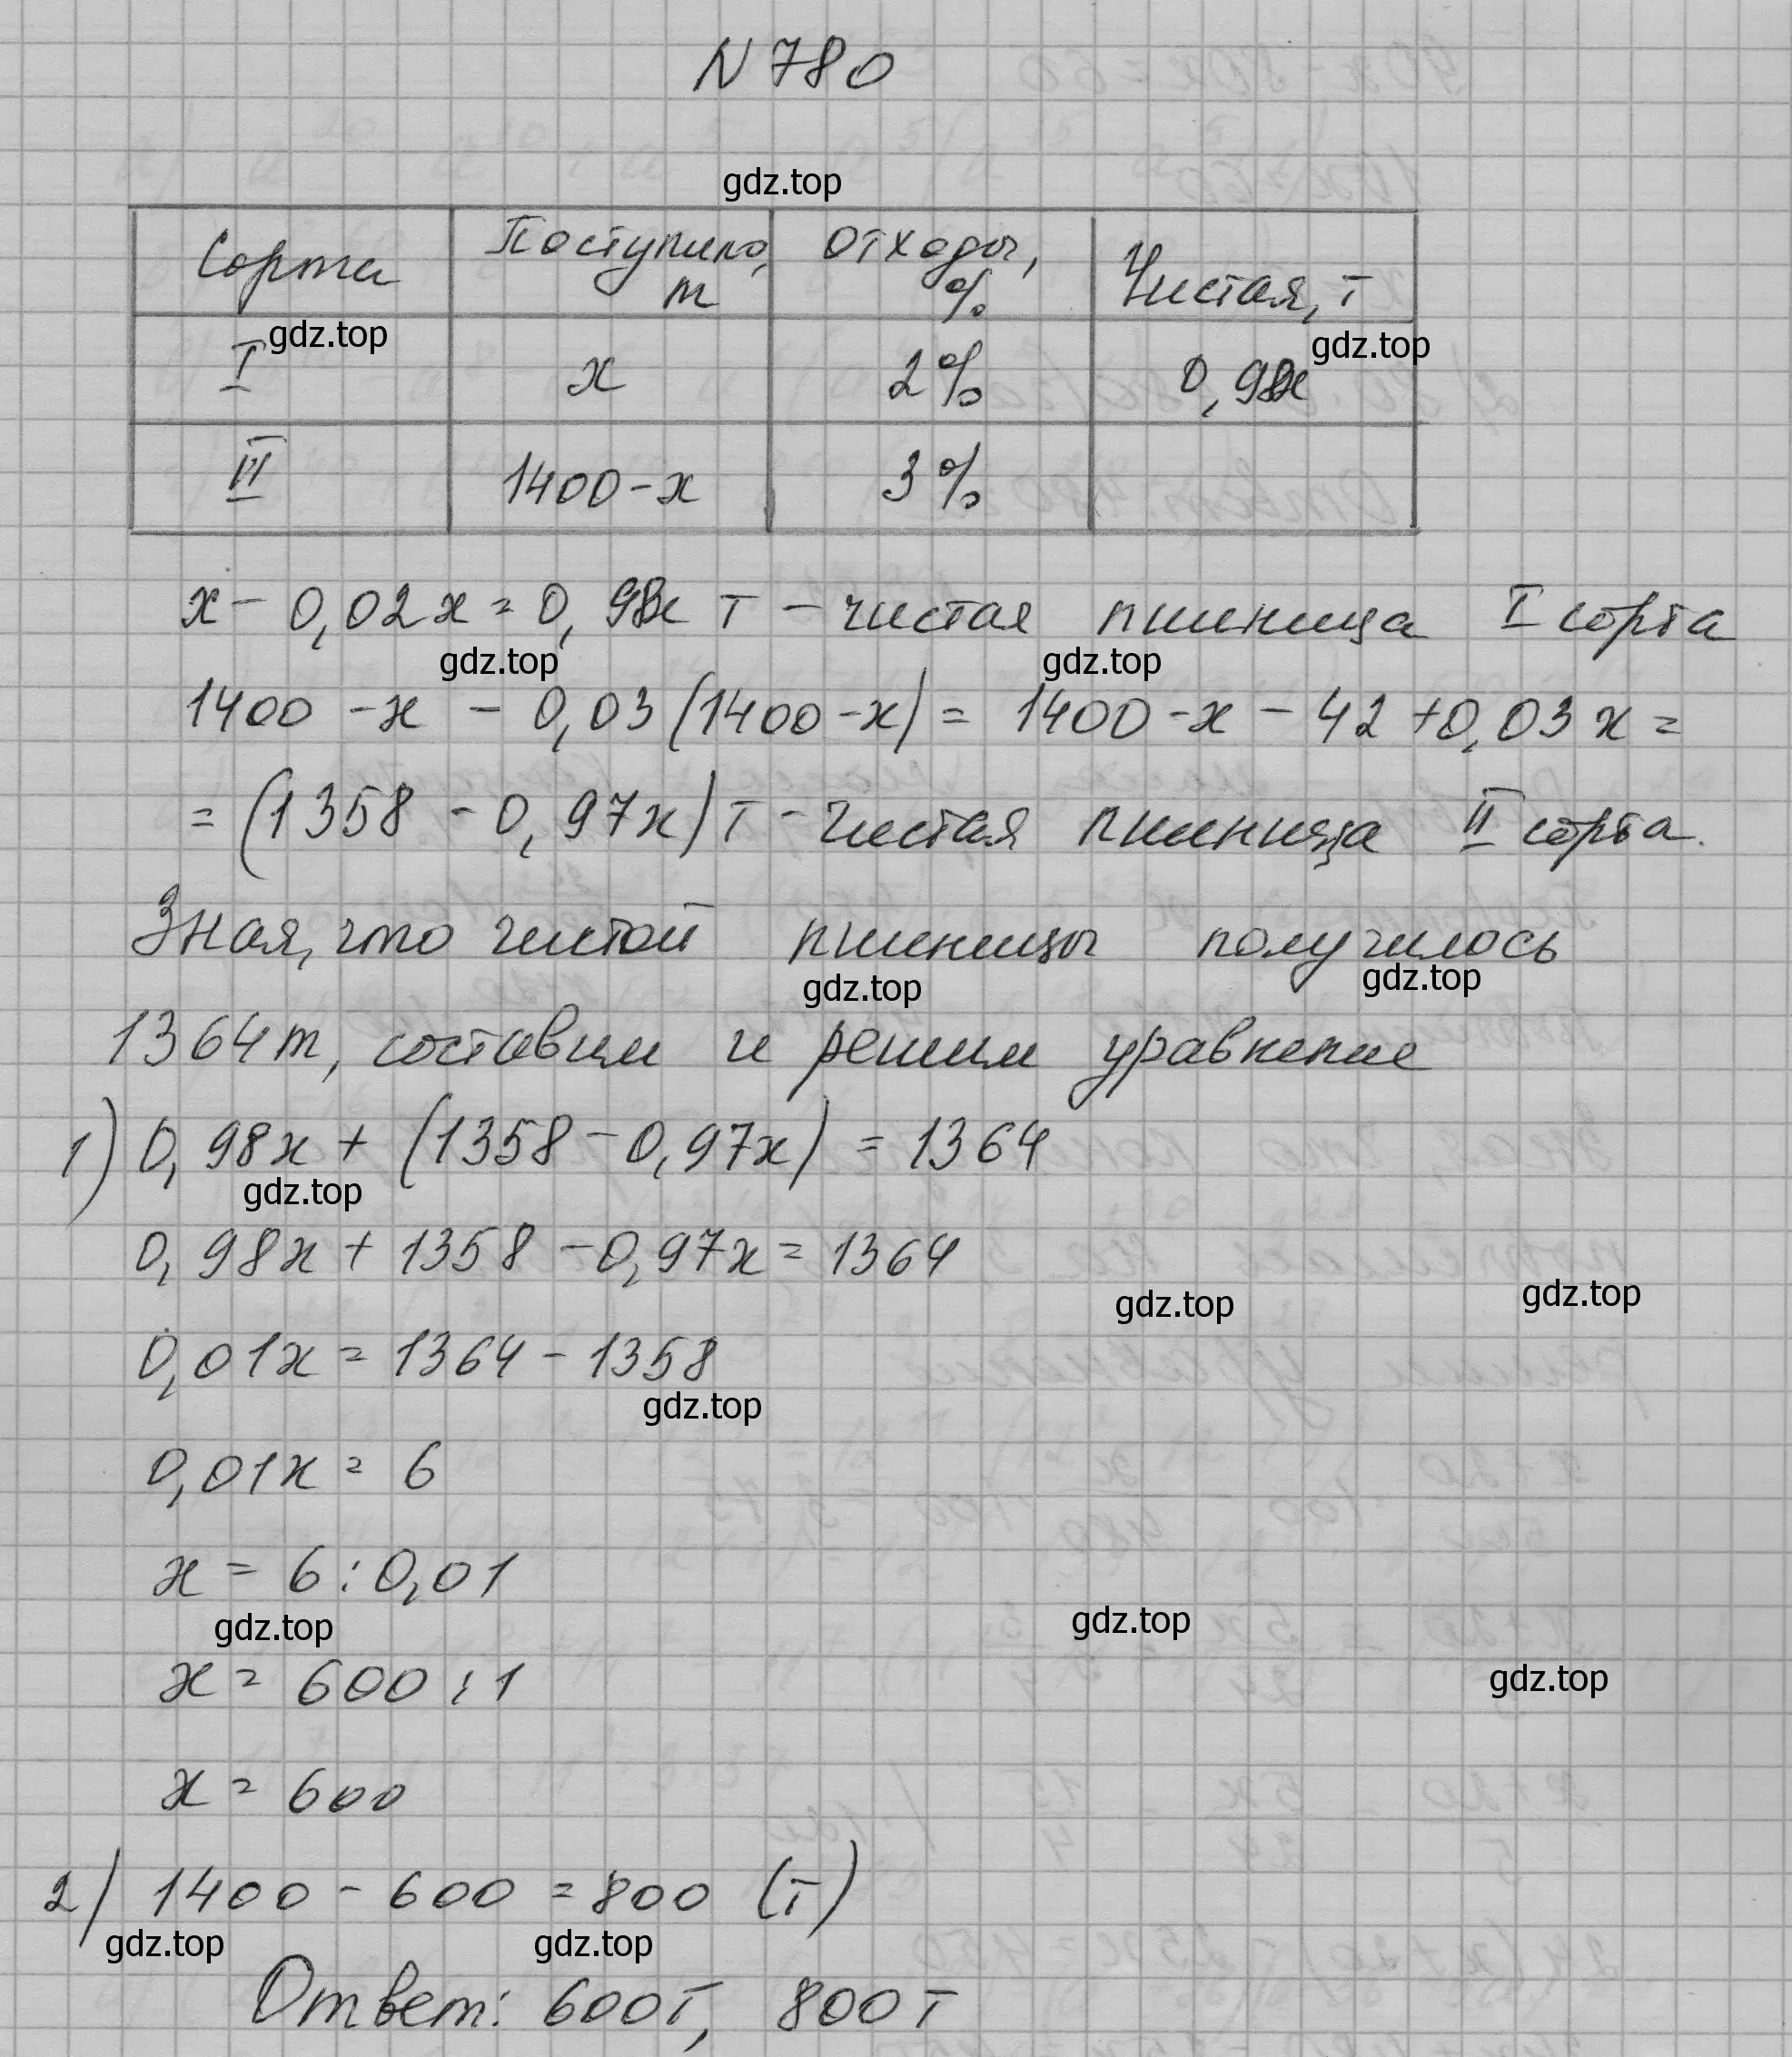 N 780
gdz.top
Сорта Поступило, т Отходы, % Чистая, т
I gdz.top x 2% 0,98x gdz.top
II 1400-x 3%
x - 0,02x = 0,98x т - чистая пшеница I сорта
gdz.top gdz.top
1400 - x - 0,03 (1400 - x) = 1400 - x - 42 + 0,03x =
= (1358 - 0,97x) т - чистая пшеница II сорта.
Зная, что чистой пшеницы получилось
gdz.top gdz.top
1364т, составим и решим уравнение
1) 0,98x + (1358 - 0,97x) = 1364
gdz.top
0,98x + 1358 - 0,97x = 1364
gdz.top gdz.top
0,01x = 1364 - 1358
gdz.top
0,01x = 6
x = 6 : 0,01
gdz.top gdz.top
x = 600 : 1
gdz.top
x = 600
2) 1400 - 600 = 800 (т)
gdz.top gdz.top
Ответ: 600т, 800т